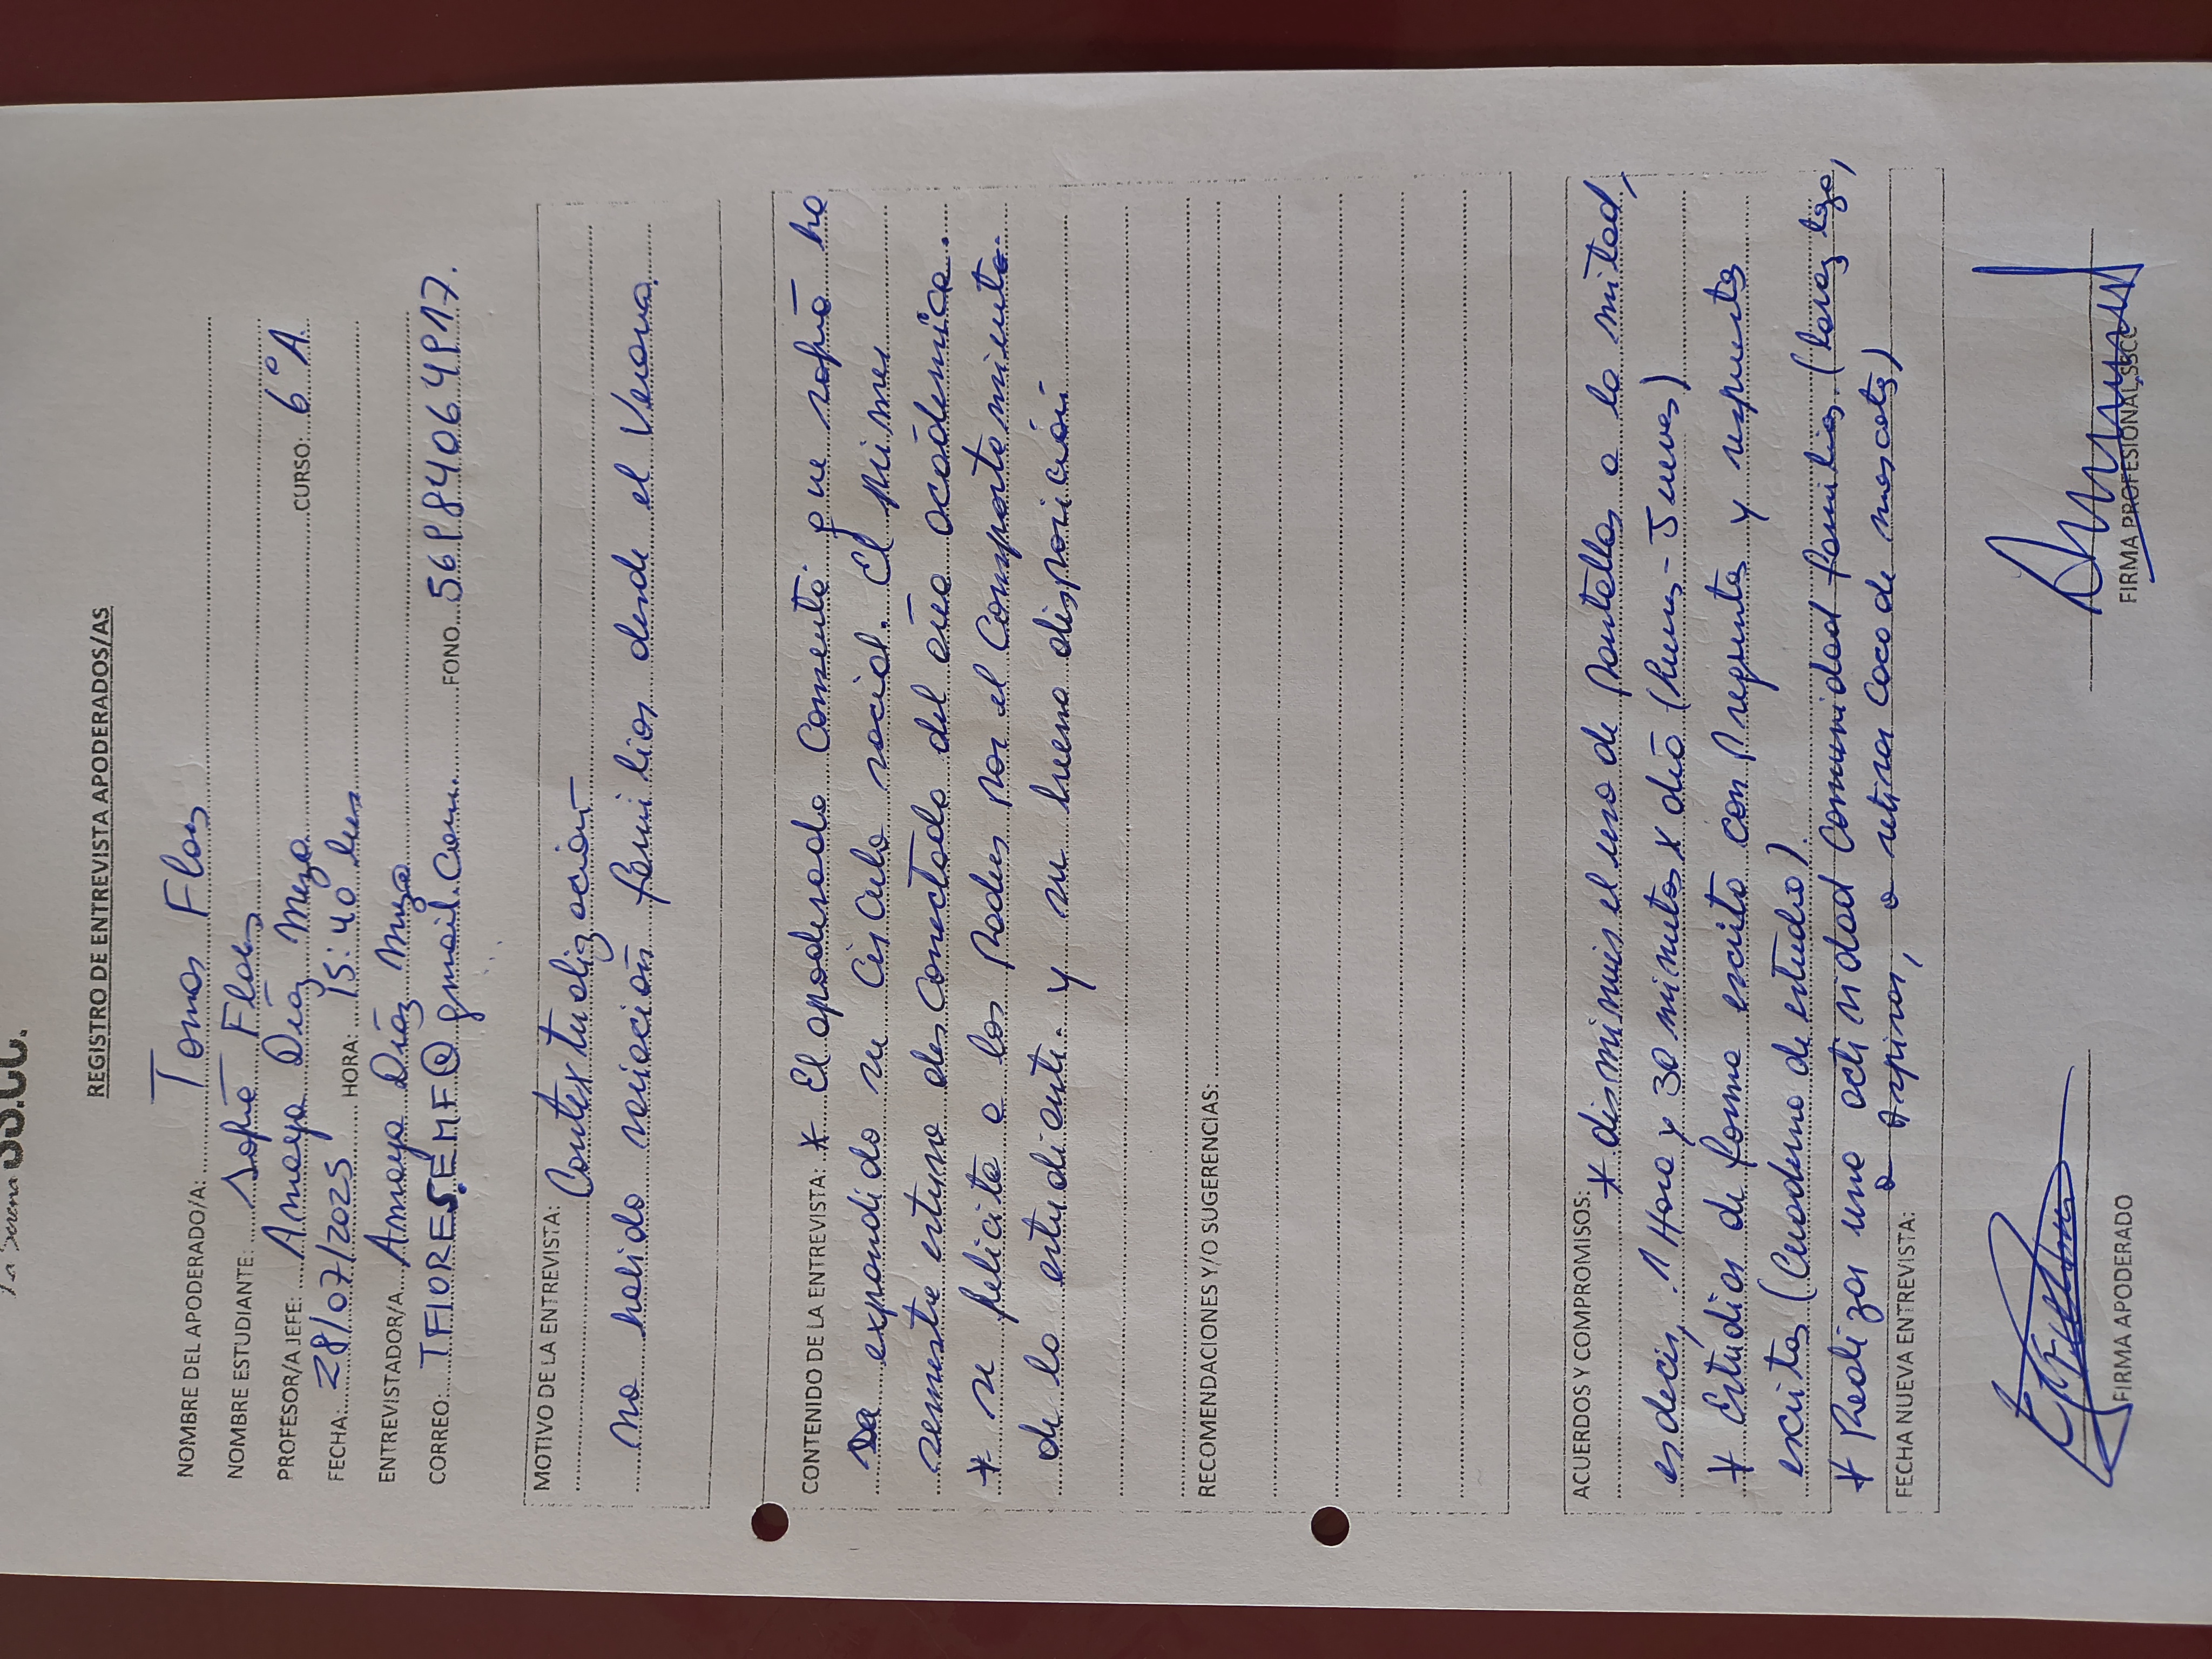 La Serena SS.CC.
REGISTRO DE ENTREVISTA APODERADOS/AS
NOMBRE DEL APODERADO/A: Tomas Flores
NOMBRE ESTUDIANTE: Sofía Flores
PROFESOR/A JEFE: Amaya Díaz Meza CURSO: 6°A.
FECHA: 28/07/2025 HORA: 15:40 hrs
ENTREVISTADOR/A Amaya Díaz Meza
CORREO: TFIORESEMF@gmail.com. FONO 56984064917.
MOTIVO DE LA ENTREVISTA: Contextualización
no ha sido situación familiar desde el Verano.
CONTENIDO DE LA ENTREVISTA: * El apoderado comenta que Sofía ha
expandido su círculo social. El primer
semestre estuvo desconectada del año académico.
* se felicita a los padres por el comportamiento
de la estudiante. y su buena disposición
RECOMENDACIONES Y/O SUGERENCIAS:
ACUERDOS Y COMPROMISOS: * disminuir el uso de pantallas a la mitad,
es decir, 1 Hora y 30 minutos x día (lunes - Jueves)
* Estudiar de forma escrita con preguntas y respuestas
escritas (Cuaderno de estudio).
* Realizar una actividad comunidad familiar.
o retirar caca de mascotas)
FECHA NUEVA ENTREVISTA:
FIRMA APODERADO
FIRMA PROFESIONAL SSCC